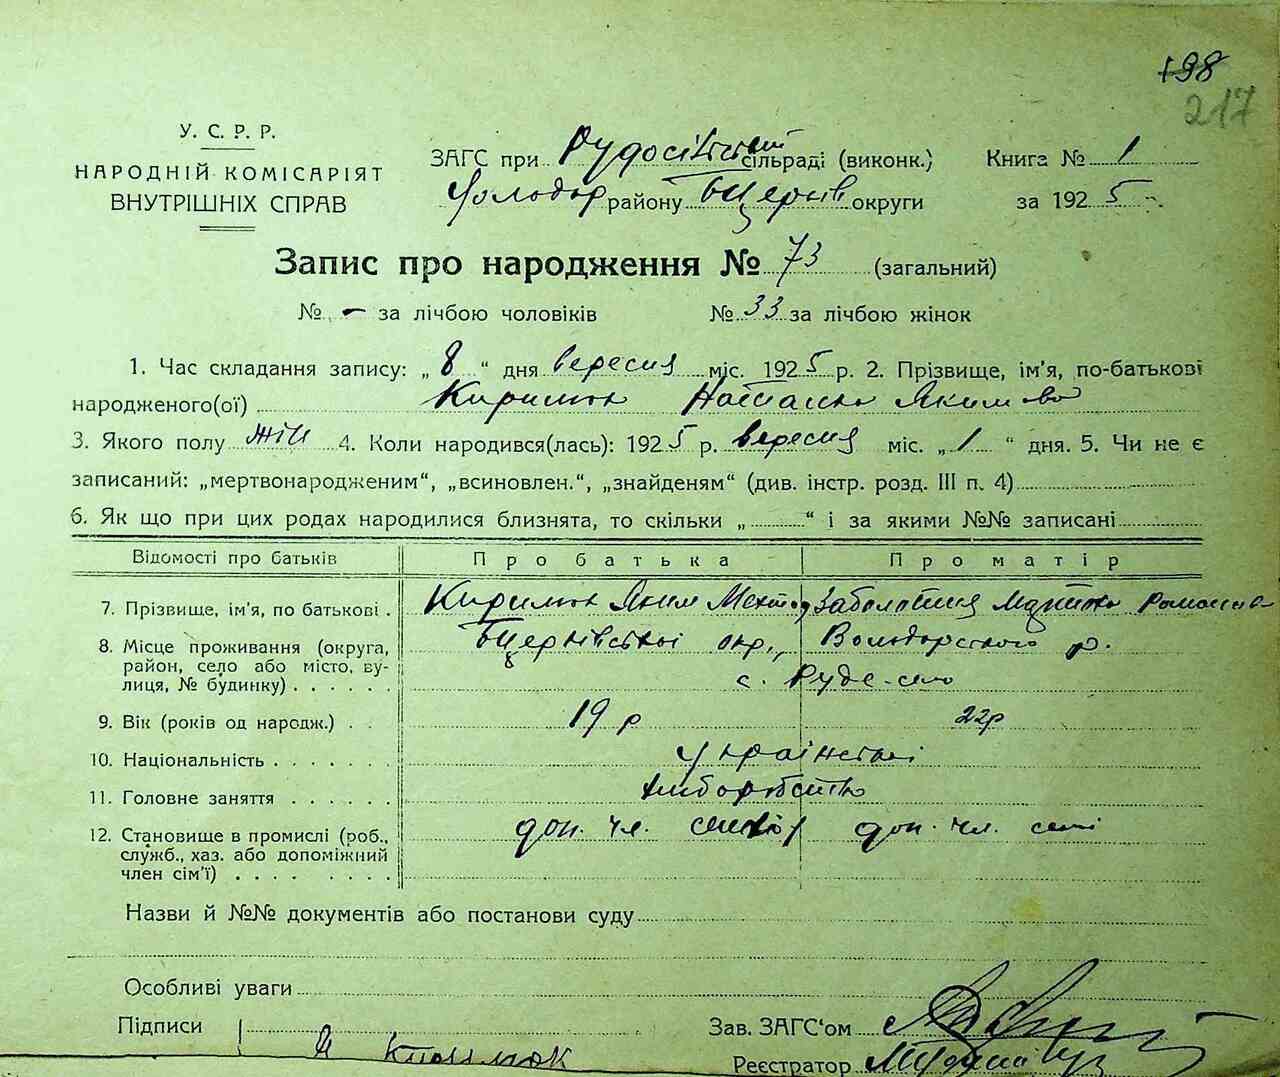 198
217
У. С. Р. Р.
НАРОДНІЙ КОМІСАРІЯТ
ВНУТРІШНІХ СПРАВ
ЗАГС при Рудосільській сільраді (виконк.) Книга № 1
Володар району БЦерків округи за 1925 р.
Запис про народження № 73 (загальний)
№ - за лічбою чоловіків № 33 за лічбою жінок
1. Час складання запису: „8“ дня вересня міс. 1925 р. 2. Прізвище, ім'я, по-батькові
народженого(ої) Кирилюк Наталка Якимова
3. Якого полу жін 4. Коли народився(лась): 1925 р. вересня міс. „1“ дня. 5. Чи не є
записаний: „мертвонародженим“, „всиновлен.“, „знайденям“ (див. інстр. розд. III п. 4)
6. Як що при цих родах народилися близнята, то скільки „ “ і за якими №№ записані
Відомості про батьків Про батька Про матір
7. Прізвище, ім'я, по батькові . Кирилюк Яким Заболотня Романова
8. Місце проживання (округа, БЦерківської окр., Володарського р.
район, село або місто, ву-
лиця, № будинку) . . . . . . с. Руде-село
9. Вік (років од народж.) . . 19 р 22 р
10. Національність . . . . . . українські
11. Головне заняття . . . . . . хліборобство
12. Становище в промислі (роб., доп. чл. доп. чл. сем
служб., хаз. або допоміжний
член сім'ї) . . . . . . . .
Назви й №№ документів або постанови суду
Особливі уваги
Підписи Я Кирилюк Зав. ЗАГС'ом
Реєстратор